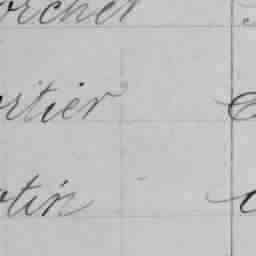 orcher
rtier
otin